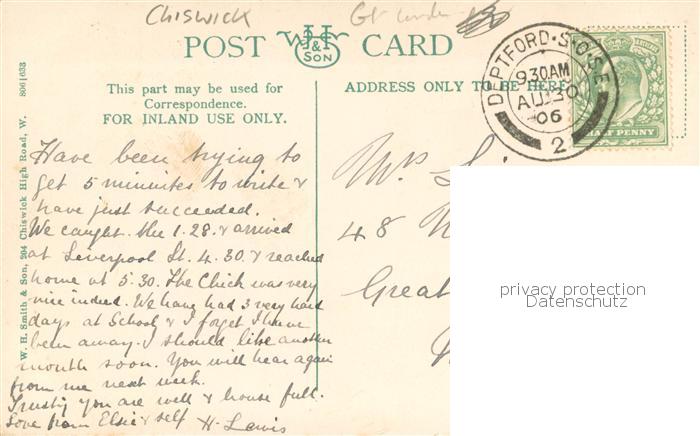 Chiswick
POST CARD
WH
S&
SON
DEPTFORD·S·O·S.E
9.30AM
AU 30
06
2
HALF PENNY
This part may be used for
Correspondence.
FOR INLAND USE ONLY.
ADDRESS ONLY TO BE HERE.
W. H. Smith & Son, 204 Chiswick High Road, W.
806|633
Have been trying to
get 5 minutes to write &
have just succeeded.
We caught the 1.28. & arrived
at Liverpool St. 4.30. & reached
home at 5.30. The Chick was very
nice indeed. We have had 3 very hard
days at School & I forget I have
been away. I should like another
month soon. You will hear again
from me next week.
Trusting you are well & house full.
Love from Elsie & self H. Lewis
Mrs
48
Great
privacy protection
Datenschutz